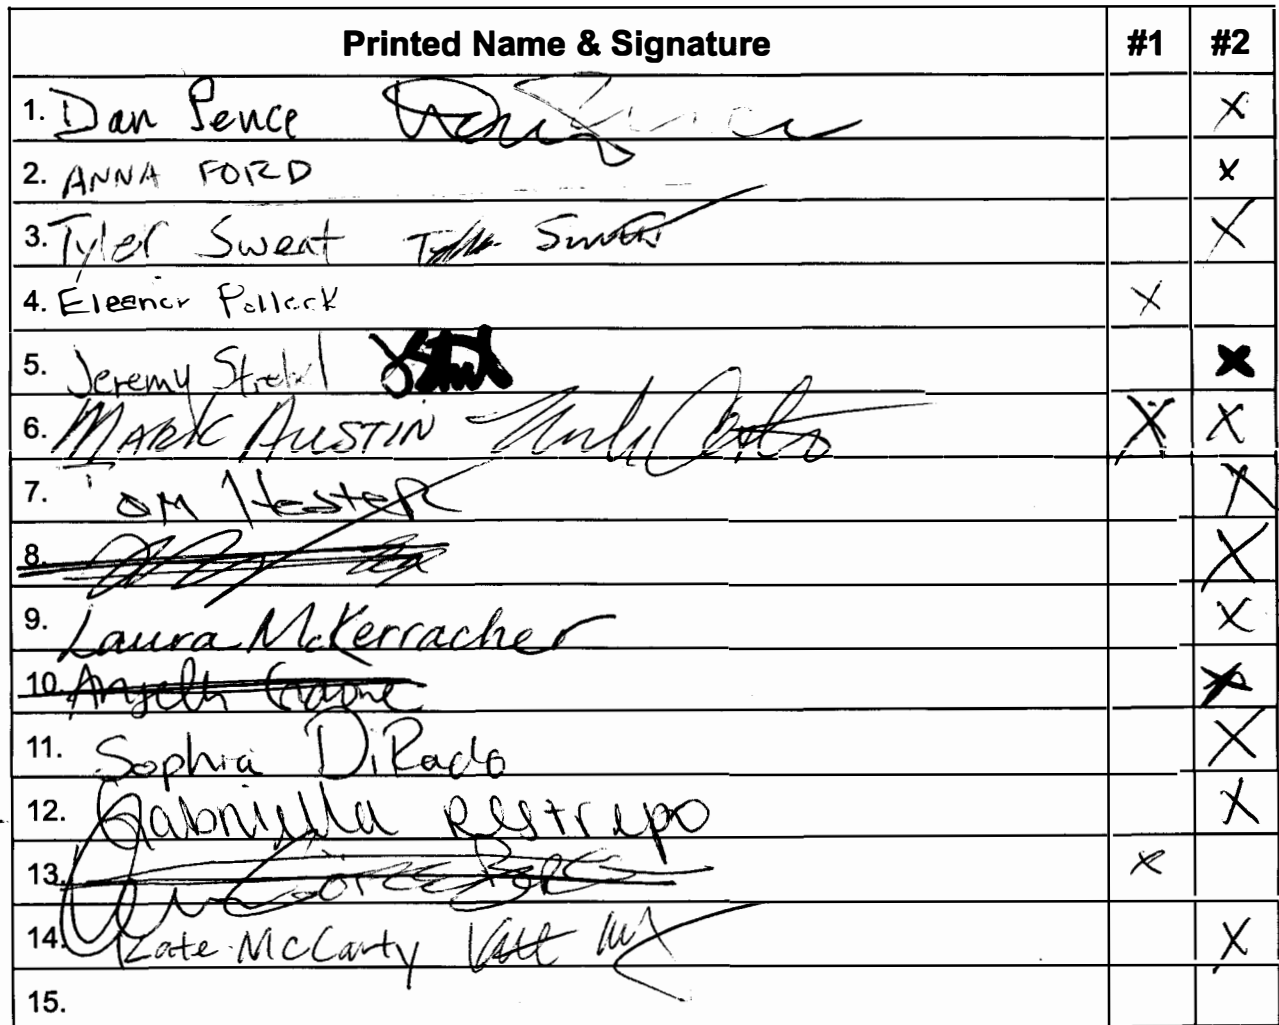 Printed Name & Signature #1 #2
1. Dan Pence Dan Pence X
2. ANNA FORD X
3. Tyler Sweat Tyler Sweat X
4. Eleanor Pollock X
5. Jeremy X
6. MARK AUSTIN Mark Austin X X
7. Tom Hester X
8. X
9. Laura McKerracher X
10. X
11. Sophia DiRado X
12. Gabriella Restrepo X
13. X
14. Kate McCarty X
15.